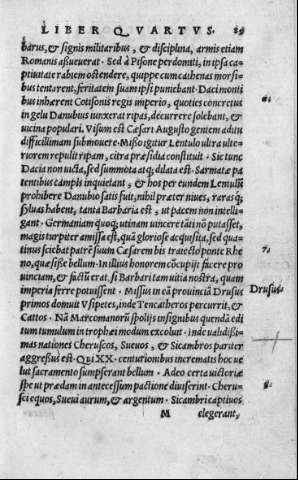 LIBER QVARTVS. 89
barus, & signis militaribus, & disciplina, armis etiam
Romanis assueuerat. Sed à Pisone perdomiti, in ipsa ca-
ptiuitate rabiem ostendere, quippe cum cathenas morsi-
bus tentarent, feritatem suam ipsi puniebant. Daci monti
bus inhærent Cotisonis regis imperio, quoties concretus
in gelu Danubius iunxerat ripas, décurrere solebant, &
uicina populari. Visum est Cæsari Augusto gentem aditu
difficillimam submouere. Misso igitur Lentulo ultra ulte-
riorem repulit ripam, citra præsidia constituit. Sic tunc
Dacia non uicta, sed summota atq; dilata est. Sarmatæ pa
tentibus cāmpis inquietant, & hos per eundem Lentulū
prohibere Danubio satis fuit, nihil præter niues, raras q́;
syluas habent, tanta Barbaria est, ut pacem non intelli-
gant. Germaniam quoq; utinam uincere tāti nō putasset,
magis turpiter amissa est, quā gloriose acquisita, sed qua-
tinus sciebat patrē suum Cæsarem bis traiecto ponte Rhe
no, quæsisse bellum. In illius honorem cōcupijt facere pro
uinciam, & factū erat, si Barbari tam uitia nostra, quam
imperia ferre potuissent. Missus in eā prouinciā Drusus
primos domuit Vsipetes, inde Tencatheros percurrit, &
Cattos. Nā Marcomanorū spolijs insignibus quendā edi
tum tumulum in trophæi modum excoluit. Inde ualidissi-
mas nationes Cheruscos, Sueuos, & Sicambros pariter
aggressus est. Qui XX. centurionibus incrematis hoc ue
lut sacramento sumpserant bellum. Adeo certa uictoriæ
spe ut prædam in antecessum pactione diuiserint. Cheru-
sci equos, Sueui aurum, & argentum. Sicambri captiuos
M elegerant,
Drusus